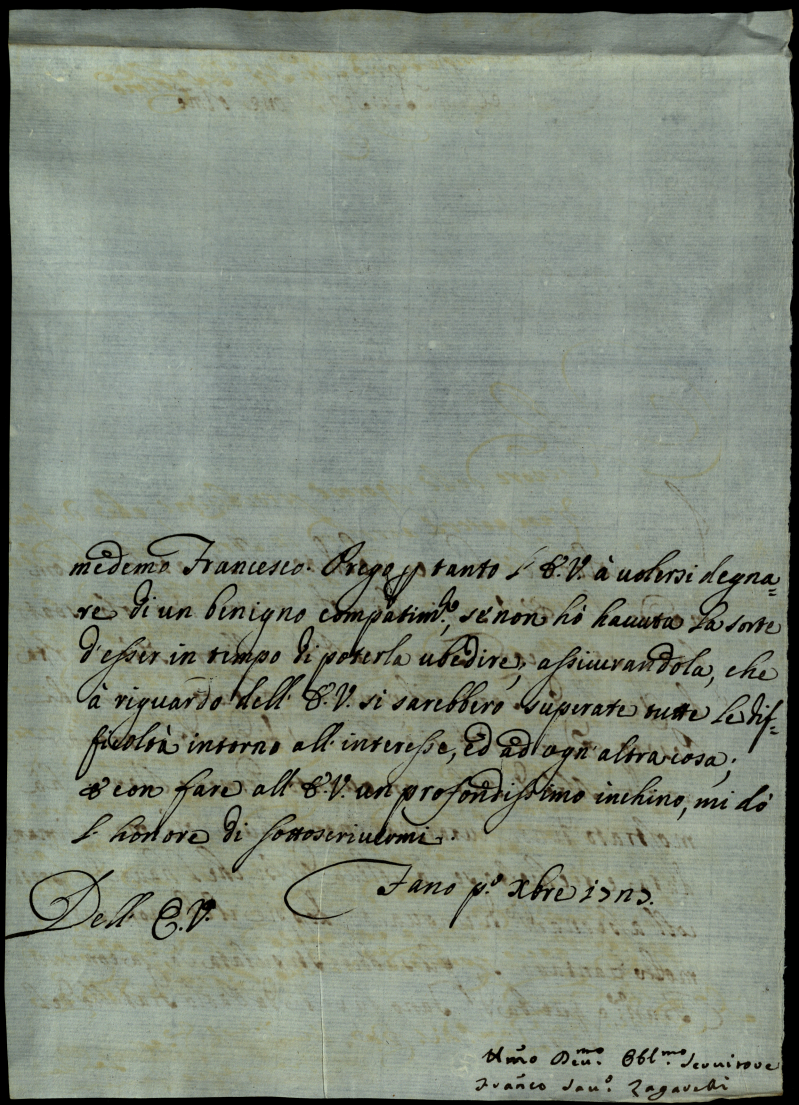 medemo Francesco. Prego p tanto l'E.V. à volersi degna=
re di un benigno compatim.to, se non hò havuta la sorte
d'esser in tempo di poterla ubedire, assicurandola, che
à riguardo dell'E.V. si sarebbero superate tutte le dif=
ficoltà intorno all'interesse, ed ad ogn'altra cosa;
E con fare all'E.V. un profondissimo inchino, mi dò
l'honore di sottoscrivermi.
Fano p.o Xbre
Dell'E.V.
Umo Deu.mo Obbl.mo Servitore
Franco Sau.o